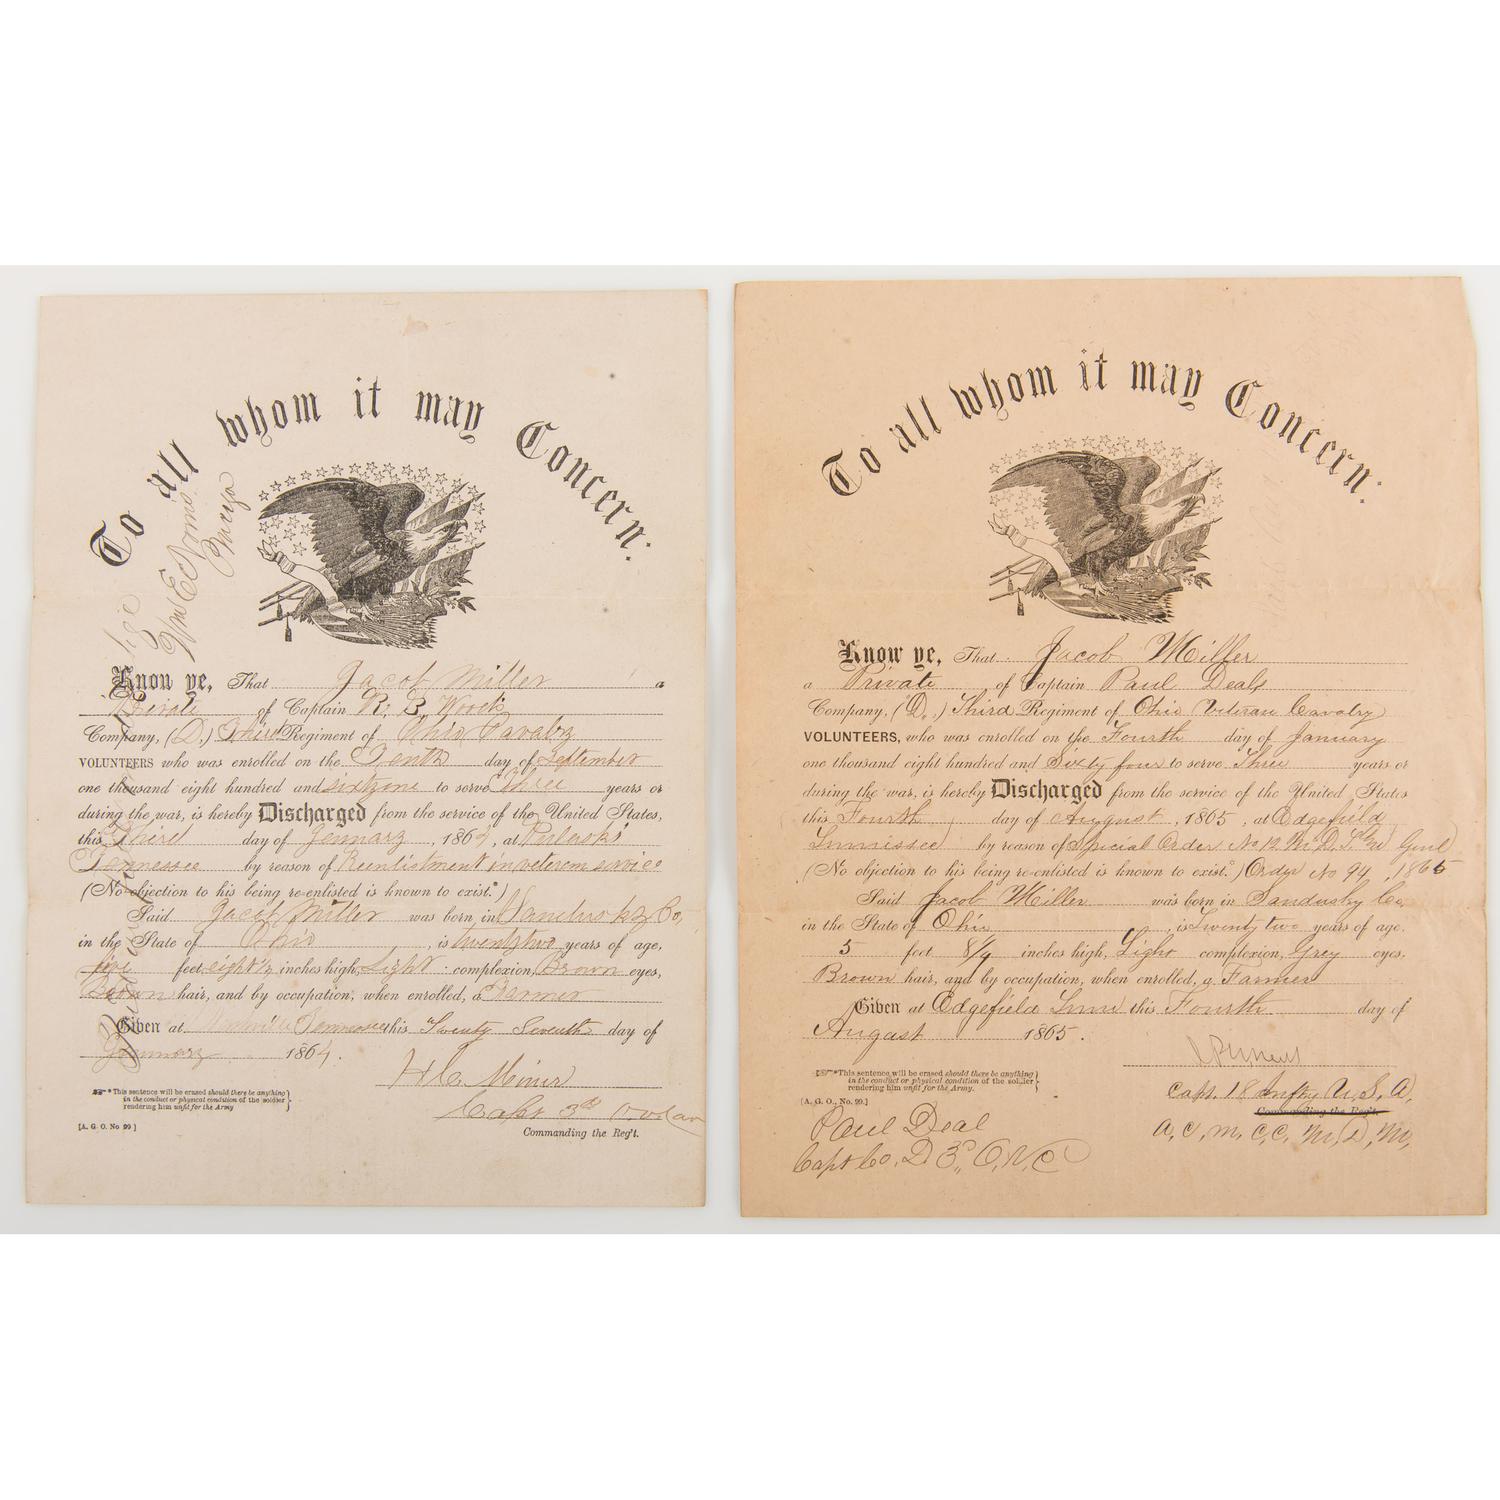 To all whom it may Concern:
Wm E Norris
Know ye, That Jacob Miller a
Private of Captain R. B. Wood's
Company, (D.) Third Regiment of Ohio Cavalry
VOLUNTEERS who was enrolled on the Tenth day of September
one thousand eight hundred and sixty one to serve Three years or
during the war, is hereby Discharged from the service of the United States,
this Third day of Jennary, 1864, at Pulaski
Tennessee by reason of Reenlistment in veteran service
(No objection to his being re-enlisted is known to exist.*)
Said Jacob Miller was born in Sandusky Co,
in the State of Ohio, is twenty two years of age,
five feet eight ½ inches high, Light complexion, Brown eyes,
Brown hair, and by occupation, when enrolled, a Farmer
Given at Tennessee this Twenty Seventh day of
Jannary 1864.
H. C. Miner
Capt 3rd
Commanding the Reg't.
*This sentence will be erased should there be anything
in the conduct or physical condition of the soldier
rendering him unfit for the Army
[A. G. O. No 99.]
To all whom it may Concern:
Know ye, That Jacob Miller
a Private of Captain Paul Deals
Company, (D.) Third Regiment of Ohio Veteran Cavalry
VOLUNTEERS, who was enrolled on the Fourth day of January
one thousand eight hundred and Sixty four to serve Three years or
during the war, is hereby Discharged from the service of the United States
this Fourth day of August, 1865, at Edgefield
Tennessee by reason of Special Order No 12 M. D. Genl
(No objection to his being re-enlisted is known to exist.*) Order No 94, 1865
Said Jacob Miller was born in Sandusky Co,
in the State of Ohio, is Twenty two years of age.
5 feet 8½ inches high, Light complexion, Grey eyes,
Brown hair, and by occupation, when enrolled, a Farmer
Given at Edgefield Tenn this Fourth day of
August 1865.
Capt. 18 Infty U. S. A.
Commanding the Reg't.
A. C. M. C. C. M. D. M,
*This sentence will be erased should there be anything
in the conduct or physical condition of the soldier
rendering him unfit for the Army.
[A. G. O., No. 99.]
Paul Deal
Capt Co. D 3d, O, V, C